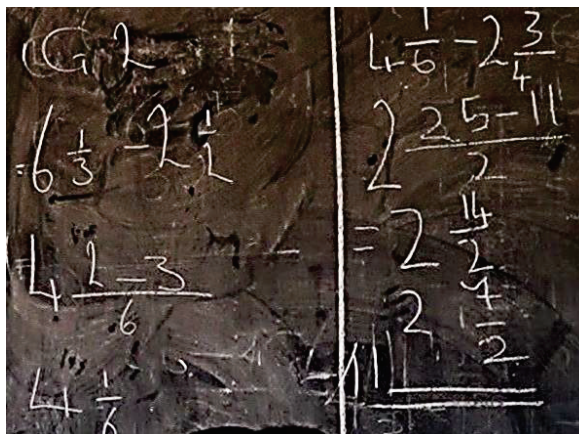 G 2
= 6 1/3 - 2 1/2
= 4 2 - 3 / 6
4 1/6
4 1/6 - 2 3/4
2 25 - 11 / 2
= 2 14/2
2 7/2